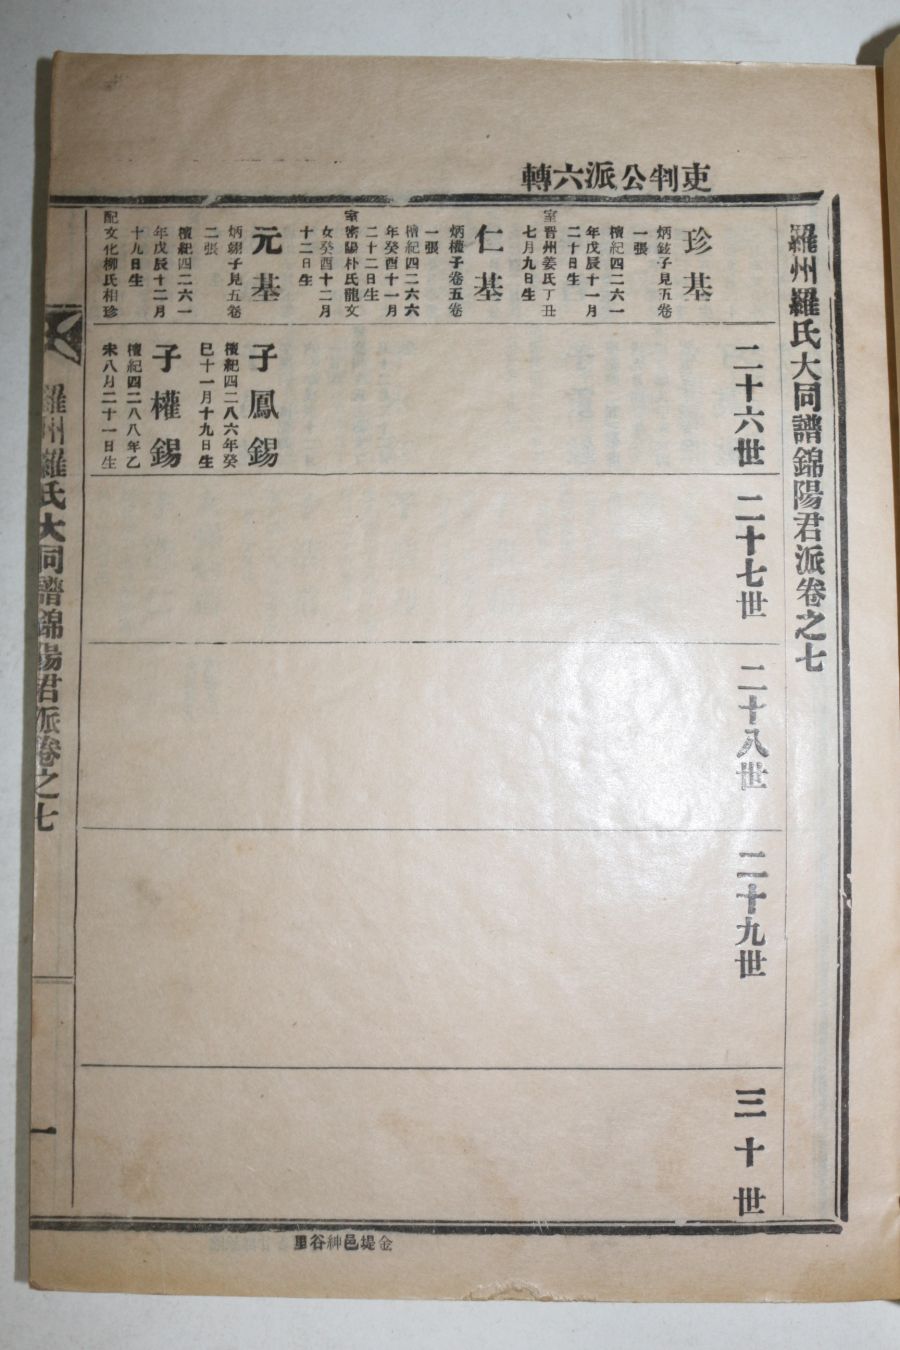 吏判公派六轉
羅州羅氏大同譜錦陽君派卷之七
珍基
炳鉉子見五卷
一張
檀紀四二六一
年戊辰十一月
二十日生
室晋州姜氏丁丑
七月九日生
仁基
炳權子卷五卷
一張
檀紀四二六六
年癸酉十一月
二十二日生
室密陽朴氏龍文
女癸酉十二月
十二日生
元基
子見五卷
二張
檀紀四二六一
年戊辰十二月
十九日生
配文化柳氏相珍
二十六世
子鳳錫
檀紀四二八六年癸
巳十一月十九日生
子權錫
檀紀四二八八年乙
未八月二十一日生
二十七世
二十八世
二十九世
三十世
羅州羅氏大同譜錦陽君派卷之七
一
金堤邑紳谷里